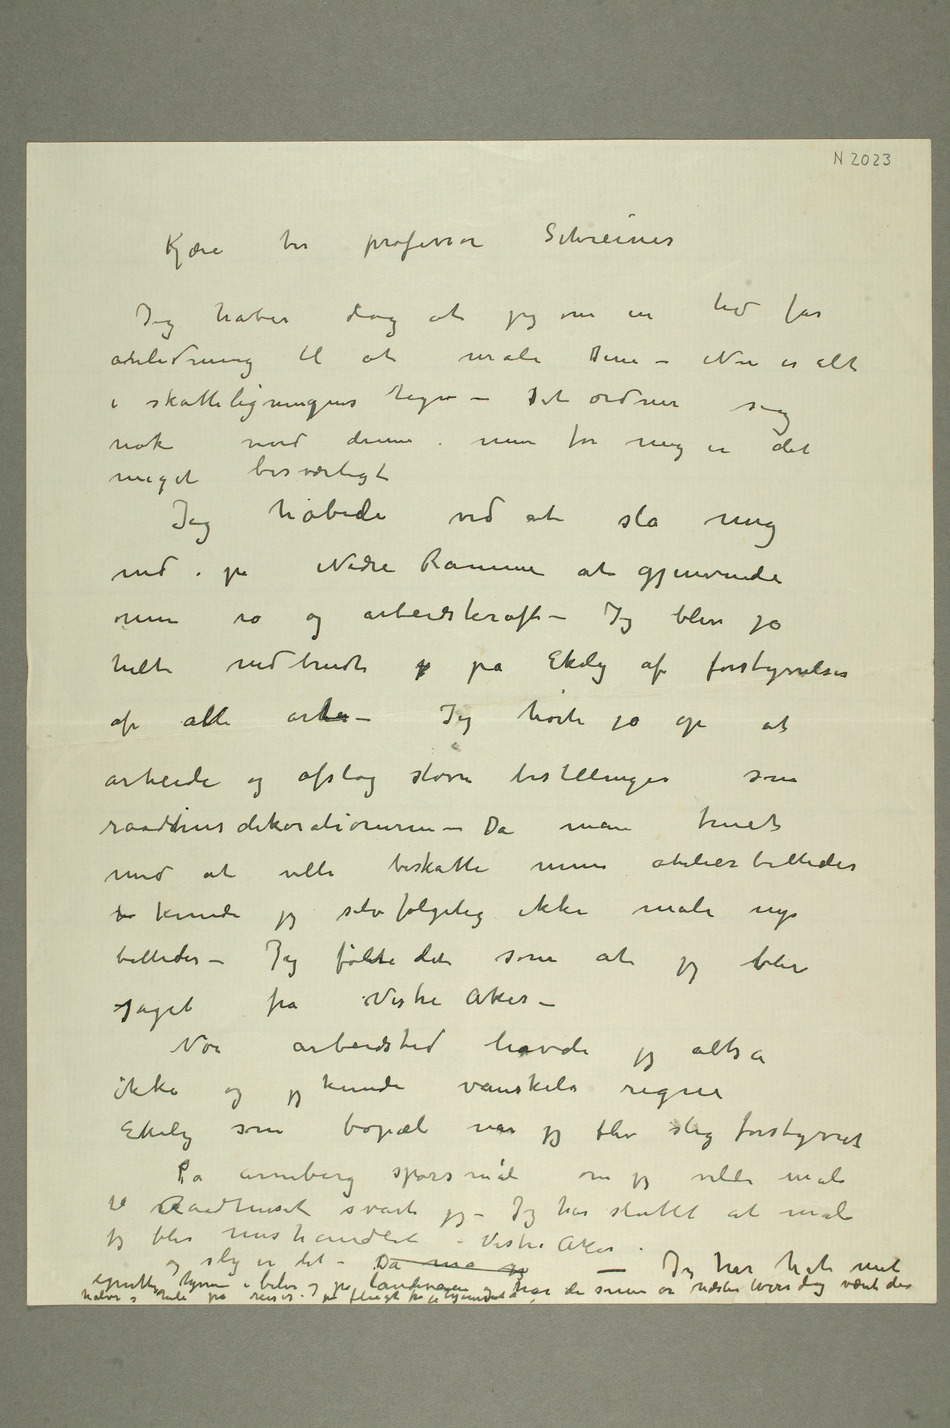 N 2023
Kjære her professor Schreiner
Jeg håber dog at jeg om en tid får
anledning til at male Dem – Nu er alt
i skatteligningens tegn – Det ordner sig
nok med denne. men for mig er det
meget besværligt
Jeg håbede ved at slå mig
ned i på Nedre Ramme at gjenvinde
min ro og arbeidskraft – Jeg blev jo
helt nedbrudt på Ekely af forstyrrelser
af alle arter – Jeg hørte jo op at
arbeide og afslog større bestillinger som
raadhusdekorationerne – Da man truet
med at ville beskatte mine atelierbilleder
kunde jeg selvfølgelig ikke male nye
billeder – Jeg følte det som at jeg blev
jaget fra Vestre Aker –
Nor arbeidsted havde jeg altså
ikke og jeg kunde vanskelig regne
Ekely som bopæl når jeg blev slig forstyrret
På Arneberg spørsmål om jeg vilde male
til Raadhuset svarte jeg – Jeg har sluttet at male
jeg blev mishandlet i Vestre Aker.
og slig er det – Da må jeg — Jeg har hat mit
egentlige hjem i biler og på landeveien og har de somre or næsten hver dag været der
halve og hele på reiser. på flugt fra